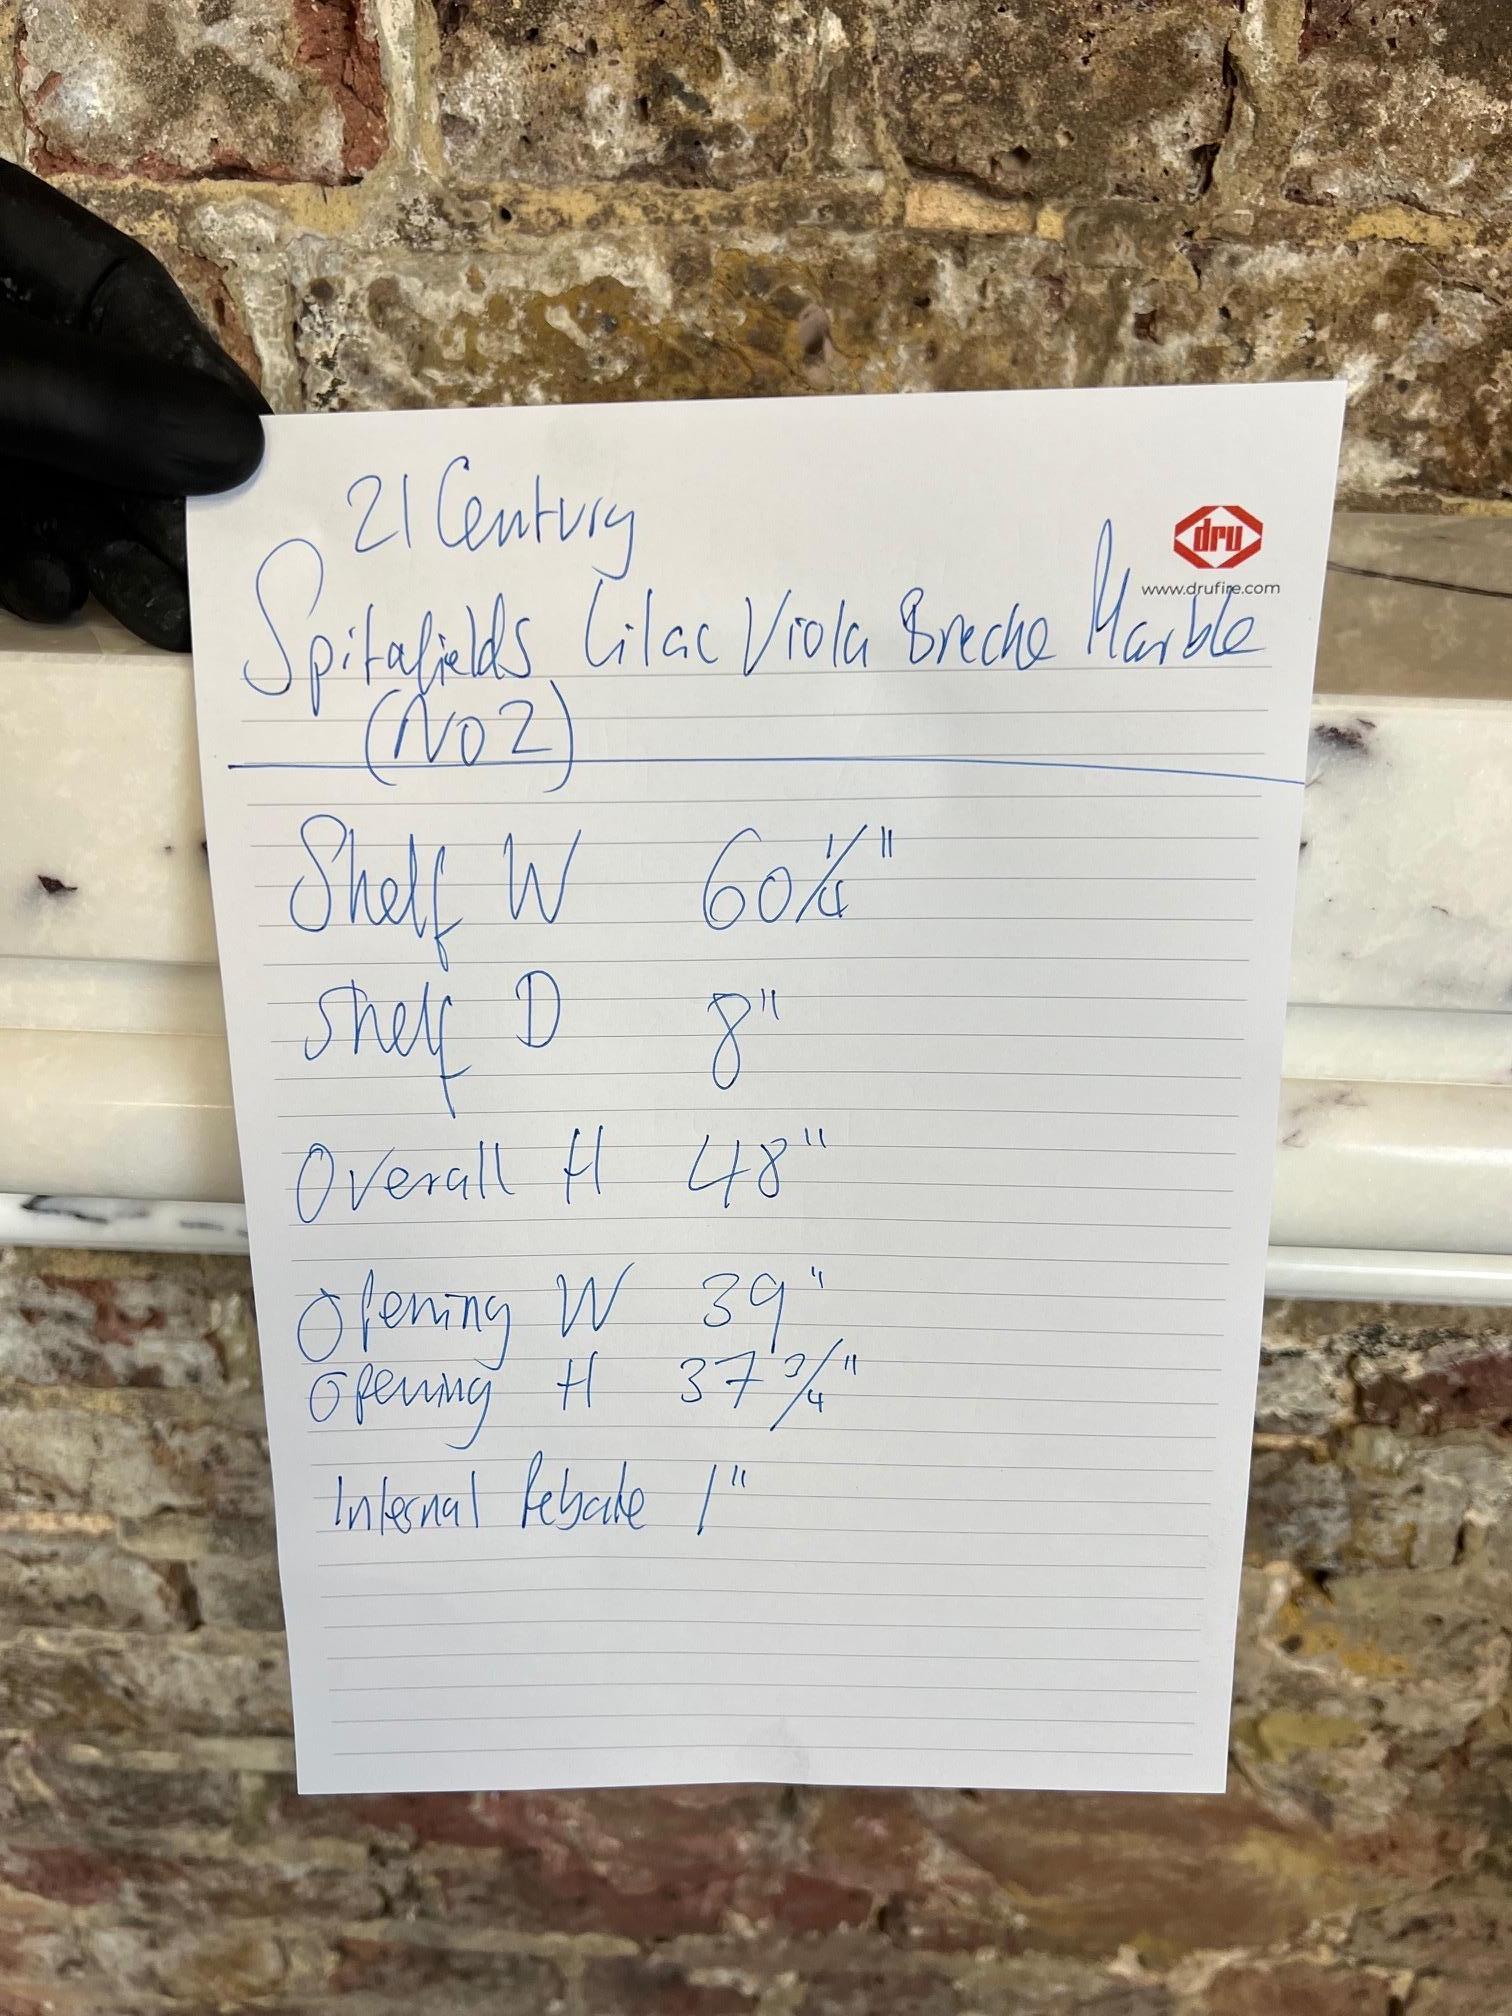 21 Century
dru
www.drufire.com
Spitafields Lilac Viola Breche Marble
(No 2)
Shelf W 60 1/4"
Shelf D 8"
Overall H 48"
Opening W 39"
Opening H 37 3/4"
Internal Rebate 1"